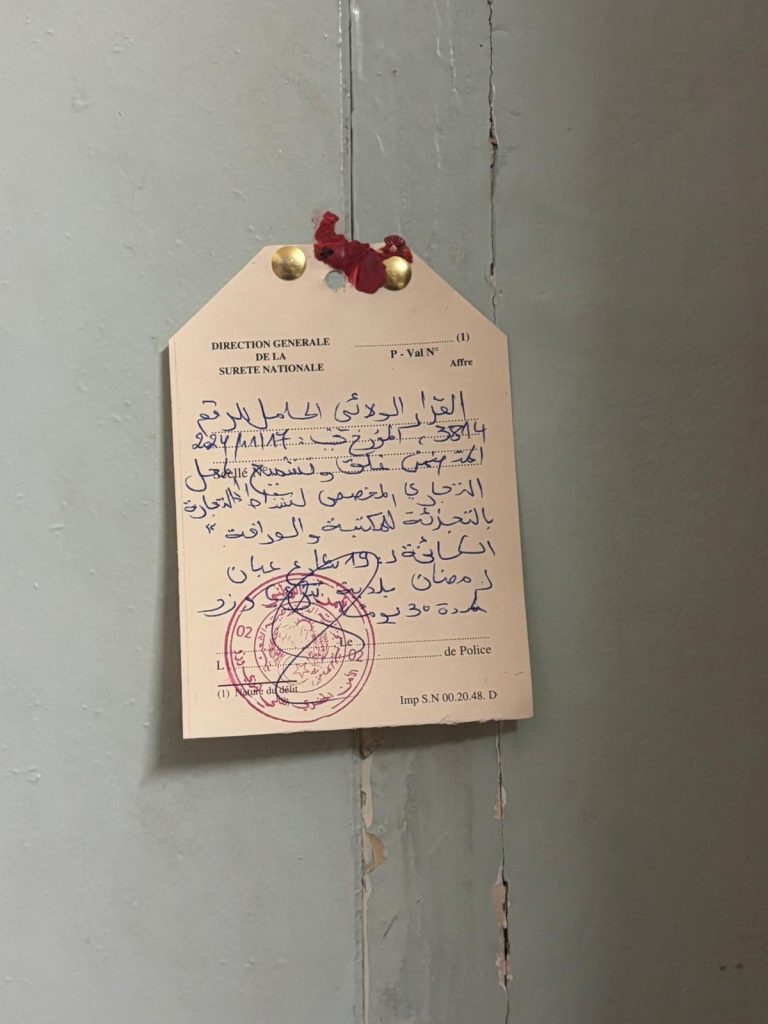 DIRECTION GENERALE
DE LA
SURETE NATIONALE
(1)
P - Val N°
Affre
القرار الولائي الحامل للرقم
3814، المؤرخ في: 224/11/17
المتضمن غلق وتشميع المحل
Scellé N
التجاري المخصص لنشاط "التجارة
بالتجزئة للمكتبة والوراقة"
الكائنة بـ: 19 شارع عبان
رمضان بلدية تيزي وزو
لمدة 30 يوما
Le
L de Police
02 02
(1) Nature du délit
Imp S.N 00.20.48. D